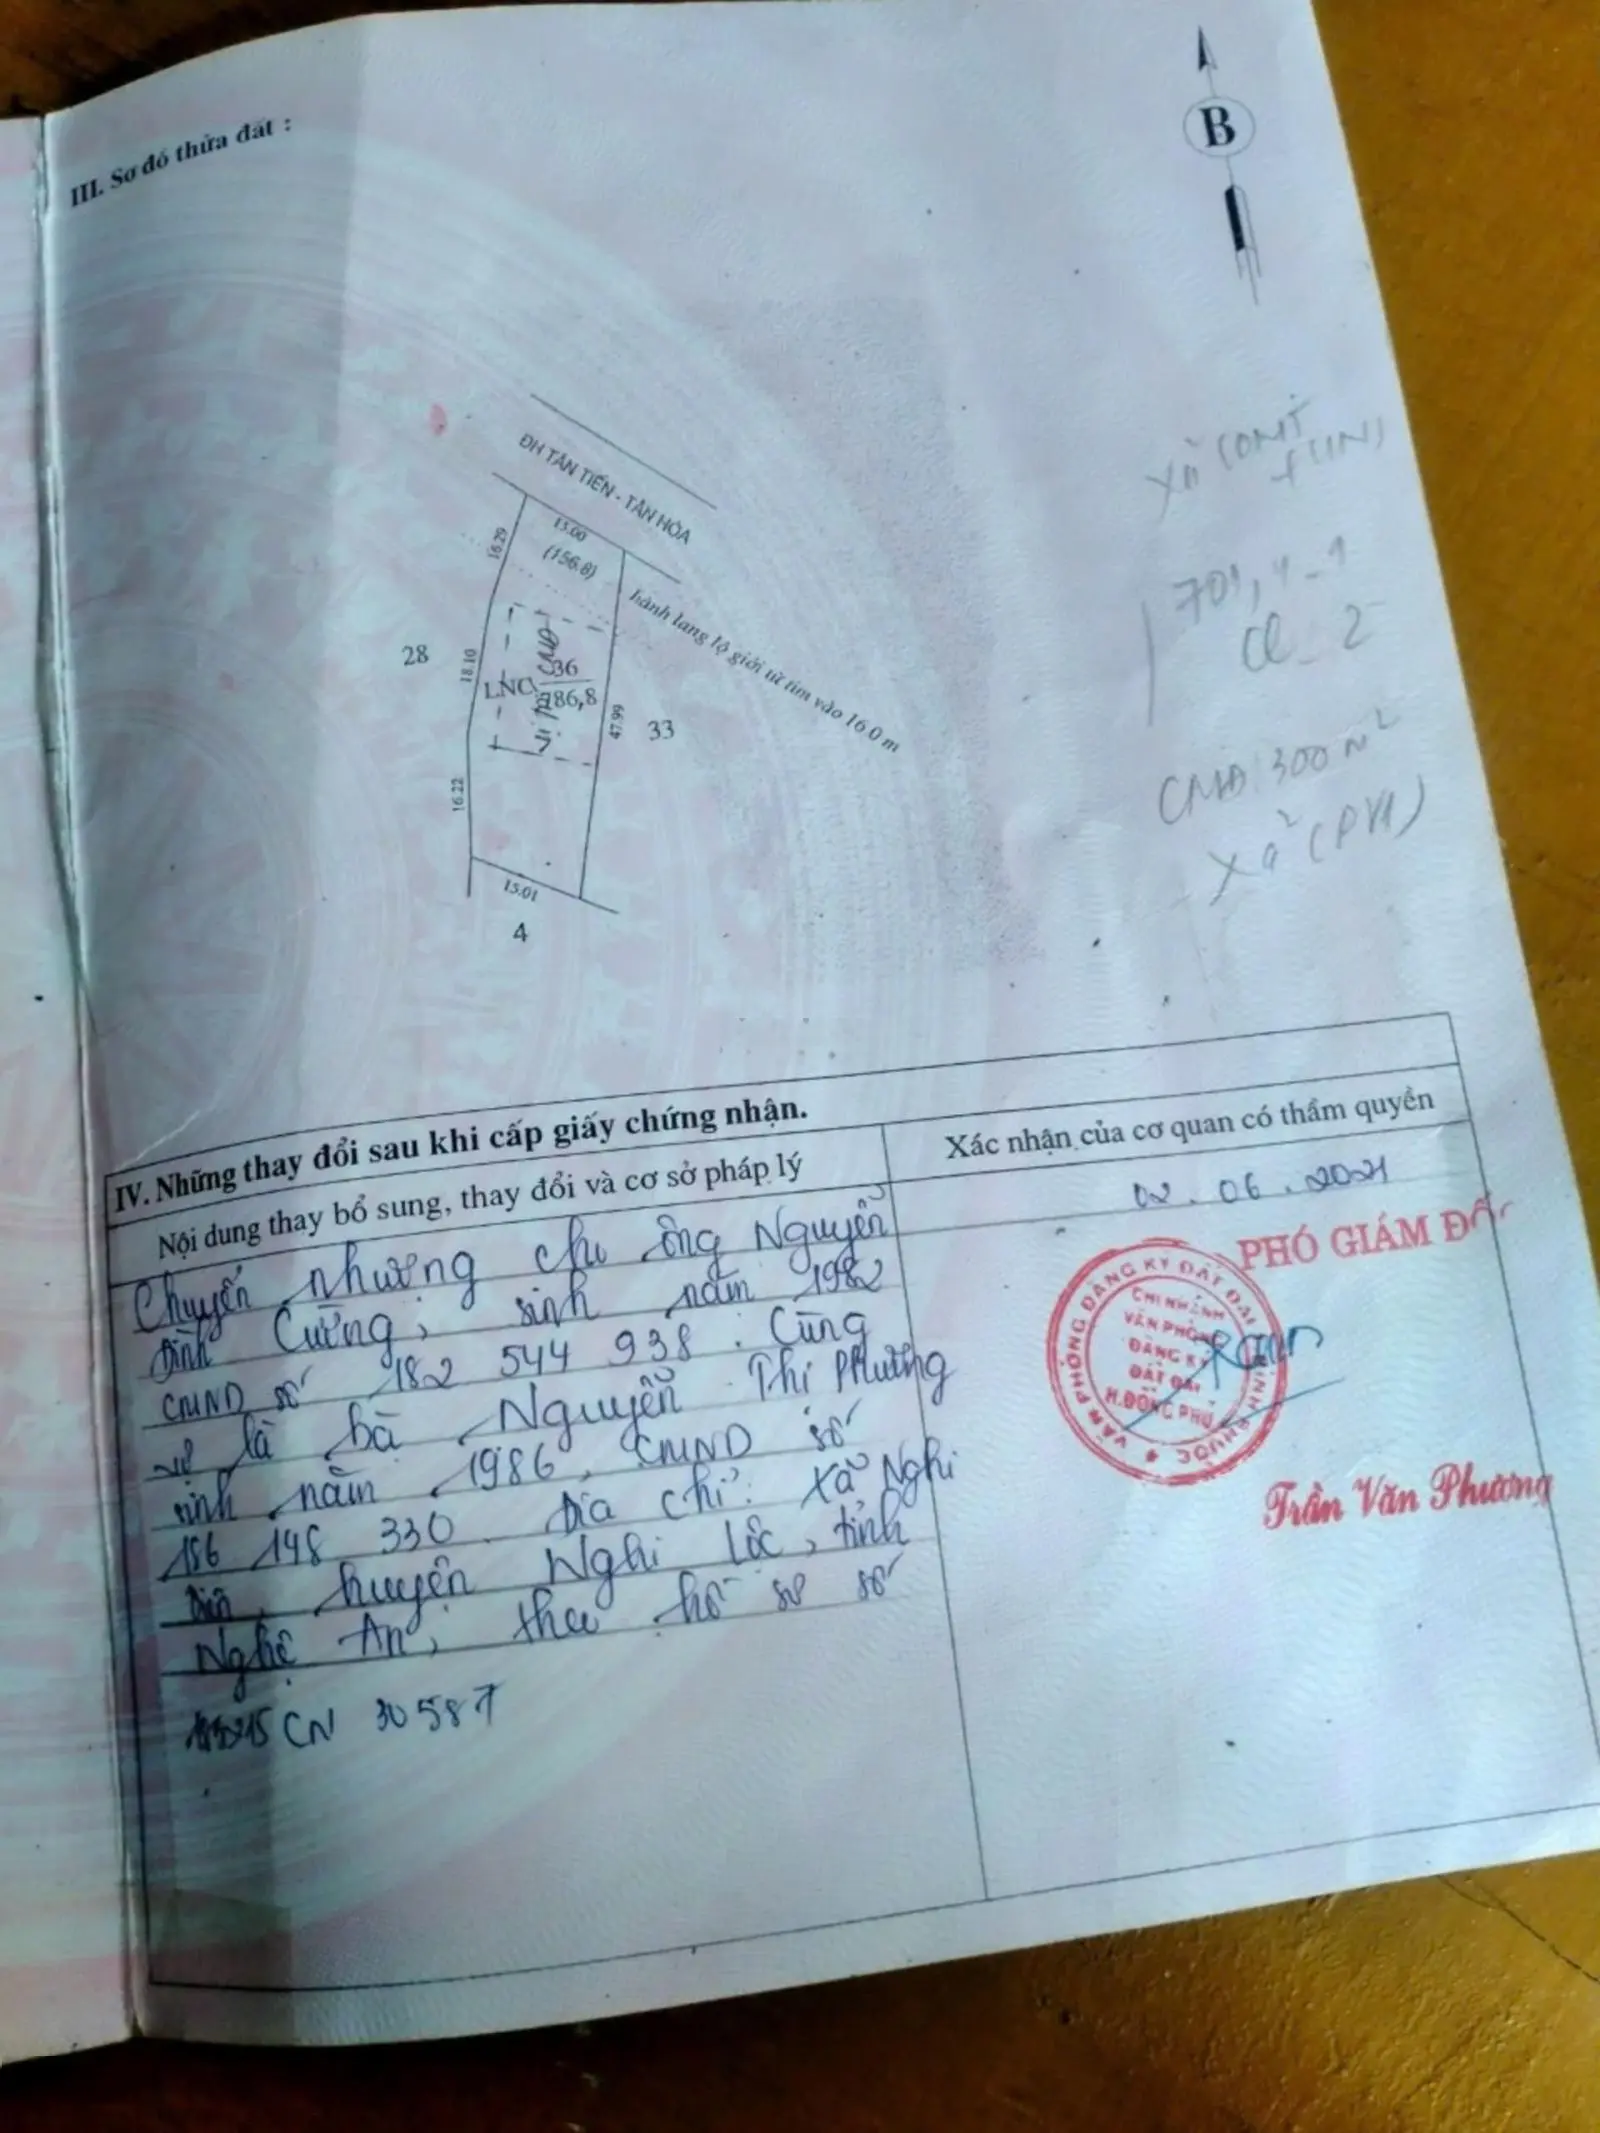 III. Sơ đồ thửa đất :
B
ĐH TÂN TIẾN - TÂN HÒA
15.00
(156.8)
16.29
hành lang lộ giới từ tim vào 16.0 m
28
18.10
LNC
36
786,8
47.99
33
16.22
15.01
4
Xã
701,4 - 1
CMĐ 300 m²
IV. Những thay đổi sau khi cấp giấy chứng nhận.
Nội dung thay bổ sung, thay đổi và cơ sở pháp lý
Xác nhận của cơ quan có thẩm quyền
Chuyển nhượng cho ông Nguyễn
Đình Cường, sinh năm 1982
CMND số 182 544 938. Cùng
vợ là bà Nguyễn Thị Phương
sinh năm 1986, CMND số
186 148 330. Địa chỉ: Xã Nghi
Diên, huyện Nghi Lộc, tỉnh
Nghệ An, theo hồ sơ số
CN 30587
02.06.2021
PHÓ GIÁM ĐỐC
VĂN PHÒNG ĐĂNG KÝ ĐẤT ĐAI TỈNH BÌNH PHƯỚC
CHI NHÁNH
VĂN PHÒNG
ĐĂNG KÝ
ĐẤT ĐAI
H.ĐỒNG PHÚ
Trần Văn Phương